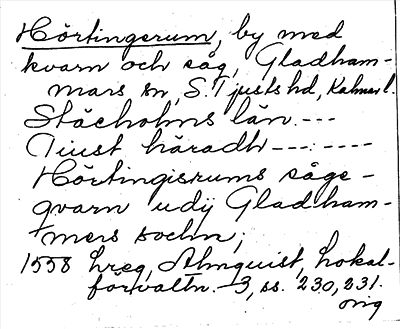 Hörtingerum, by med
kvarn och såg, Gladham-
mars sn, S. Tjusts hd, Kalmar l.
Stächolms län. ---
Tiust häradh --- : ----
Hörtingisrums såge-
qvarn udij Gladham-
mers sochn;
1558 hreg, Almquist, Lokal-
förvaltn. -3, ss. 230, 231.
orig